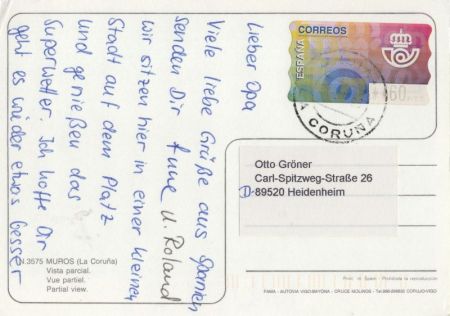 Lieber Opa
Viele liebe Grüße aus Spanien
senden Dir Anne u. Roland
wir sitzen hier in einer kleinen
Stadt auf dem Platz
und genießen das
Superwetter. Ich hoffe Dir
geht es wieder etwas besser
CORREOS
ESPAÑA
60
A CORUÑA
Otto Gröner
Carl-Spitzweg-Straße 26
D-89520 Heidenheim
N.3575 MUROS (La Coruña)
Vista parcial.
Vue partiel.
Partial view.
Print. in Spain - Prohibida la reproducción